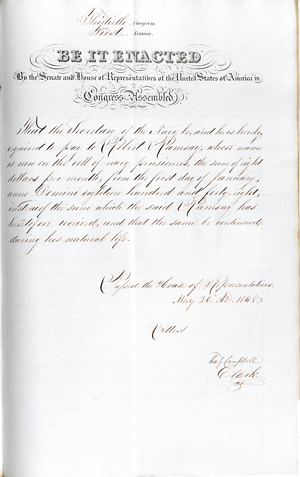 Thirtieth Congress.
First Session.
BE IT ENACTED
By the Senate and House of Representatives of the United States of America in
Congress Assembled,
That the Secretary of the Navy be, and he is hereby,
required to pay to Robert Ramsay, whose name
is now on the roll of navy pensioners, the sum of eight
dollars per month, from the first day of January,
anno Domini eighteen hundred and forty eight,
instead of the sum which the said Ramsay has
heretofore received, and that the same be continued
during his natural life.
Passed the House of Representatives
May 26. A.D. 1848
Attest
Campbell
Clerk